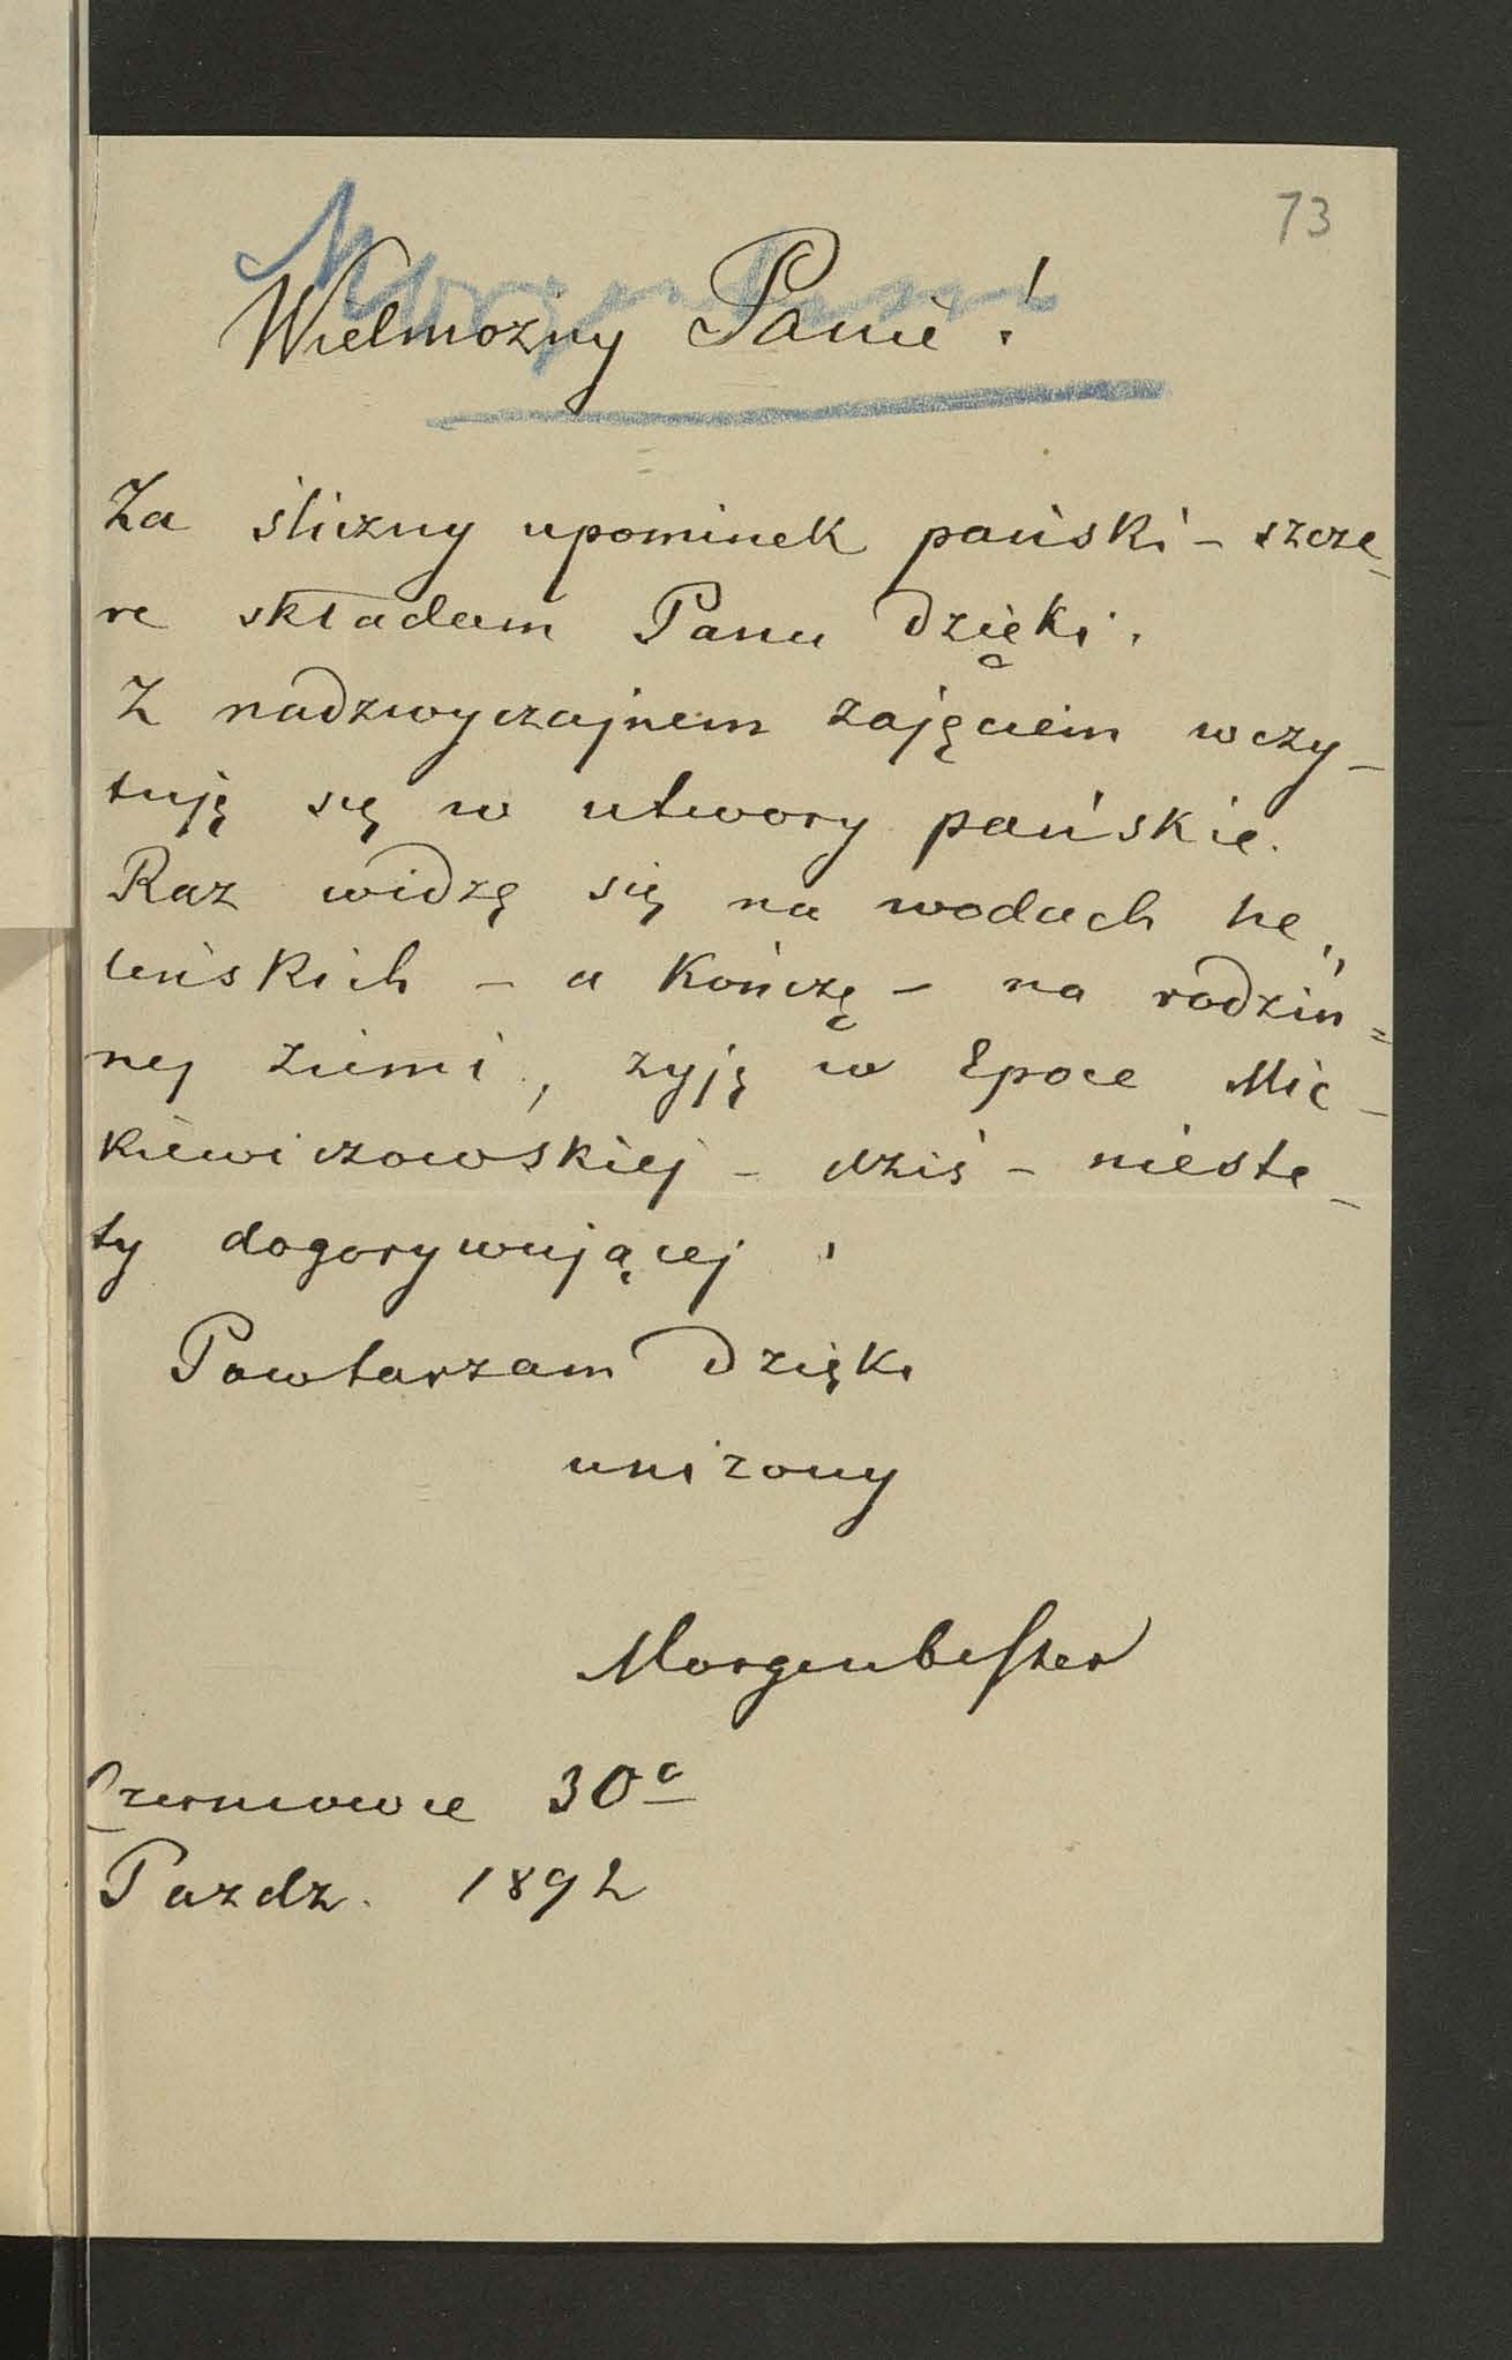 73
Wielmozny Panie!
Za śliczny upominek pański – szcze-
re składam Panu dzięki.
Z nadzwyczajnem zajęciem wczy-
tuję się w utwory pańskie.
Raz widzę się na wodach he-
leńskich – a kończę – na rodzin=
nej ziemi, zyję w Epoce Mic-
kiewiczowskiej – dziś – nieste-
ty dogorywującej.
Powtarzam dzięki
unizony
Morgenbesser
Czerniowce 30º
Pazdz. 1892